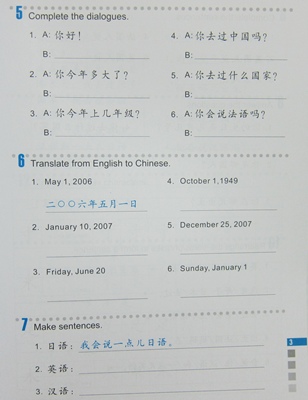 5 Complete the dialogues.
1. A: 你好！
B:
2. A: 你今年多大了？
B:
3. A: 你今年上几年级？
B:
4. A: 你去过中国吗？
B:
5. A: 你去过什么国家？
B:
6. A: 你会说法语吗？
B:
6 Translate from English to Chinese.
1. May 1, 2006
二〇〇六年五月一日
2. January 10, 2007
3. Friday, June 20
4. October 1,1949
5. December 25, 2007
6. Sunday, January 1
7 Make sentences.
1. 日语：我会说一点儿日语。
2. 英语：
3. 汉语：
3